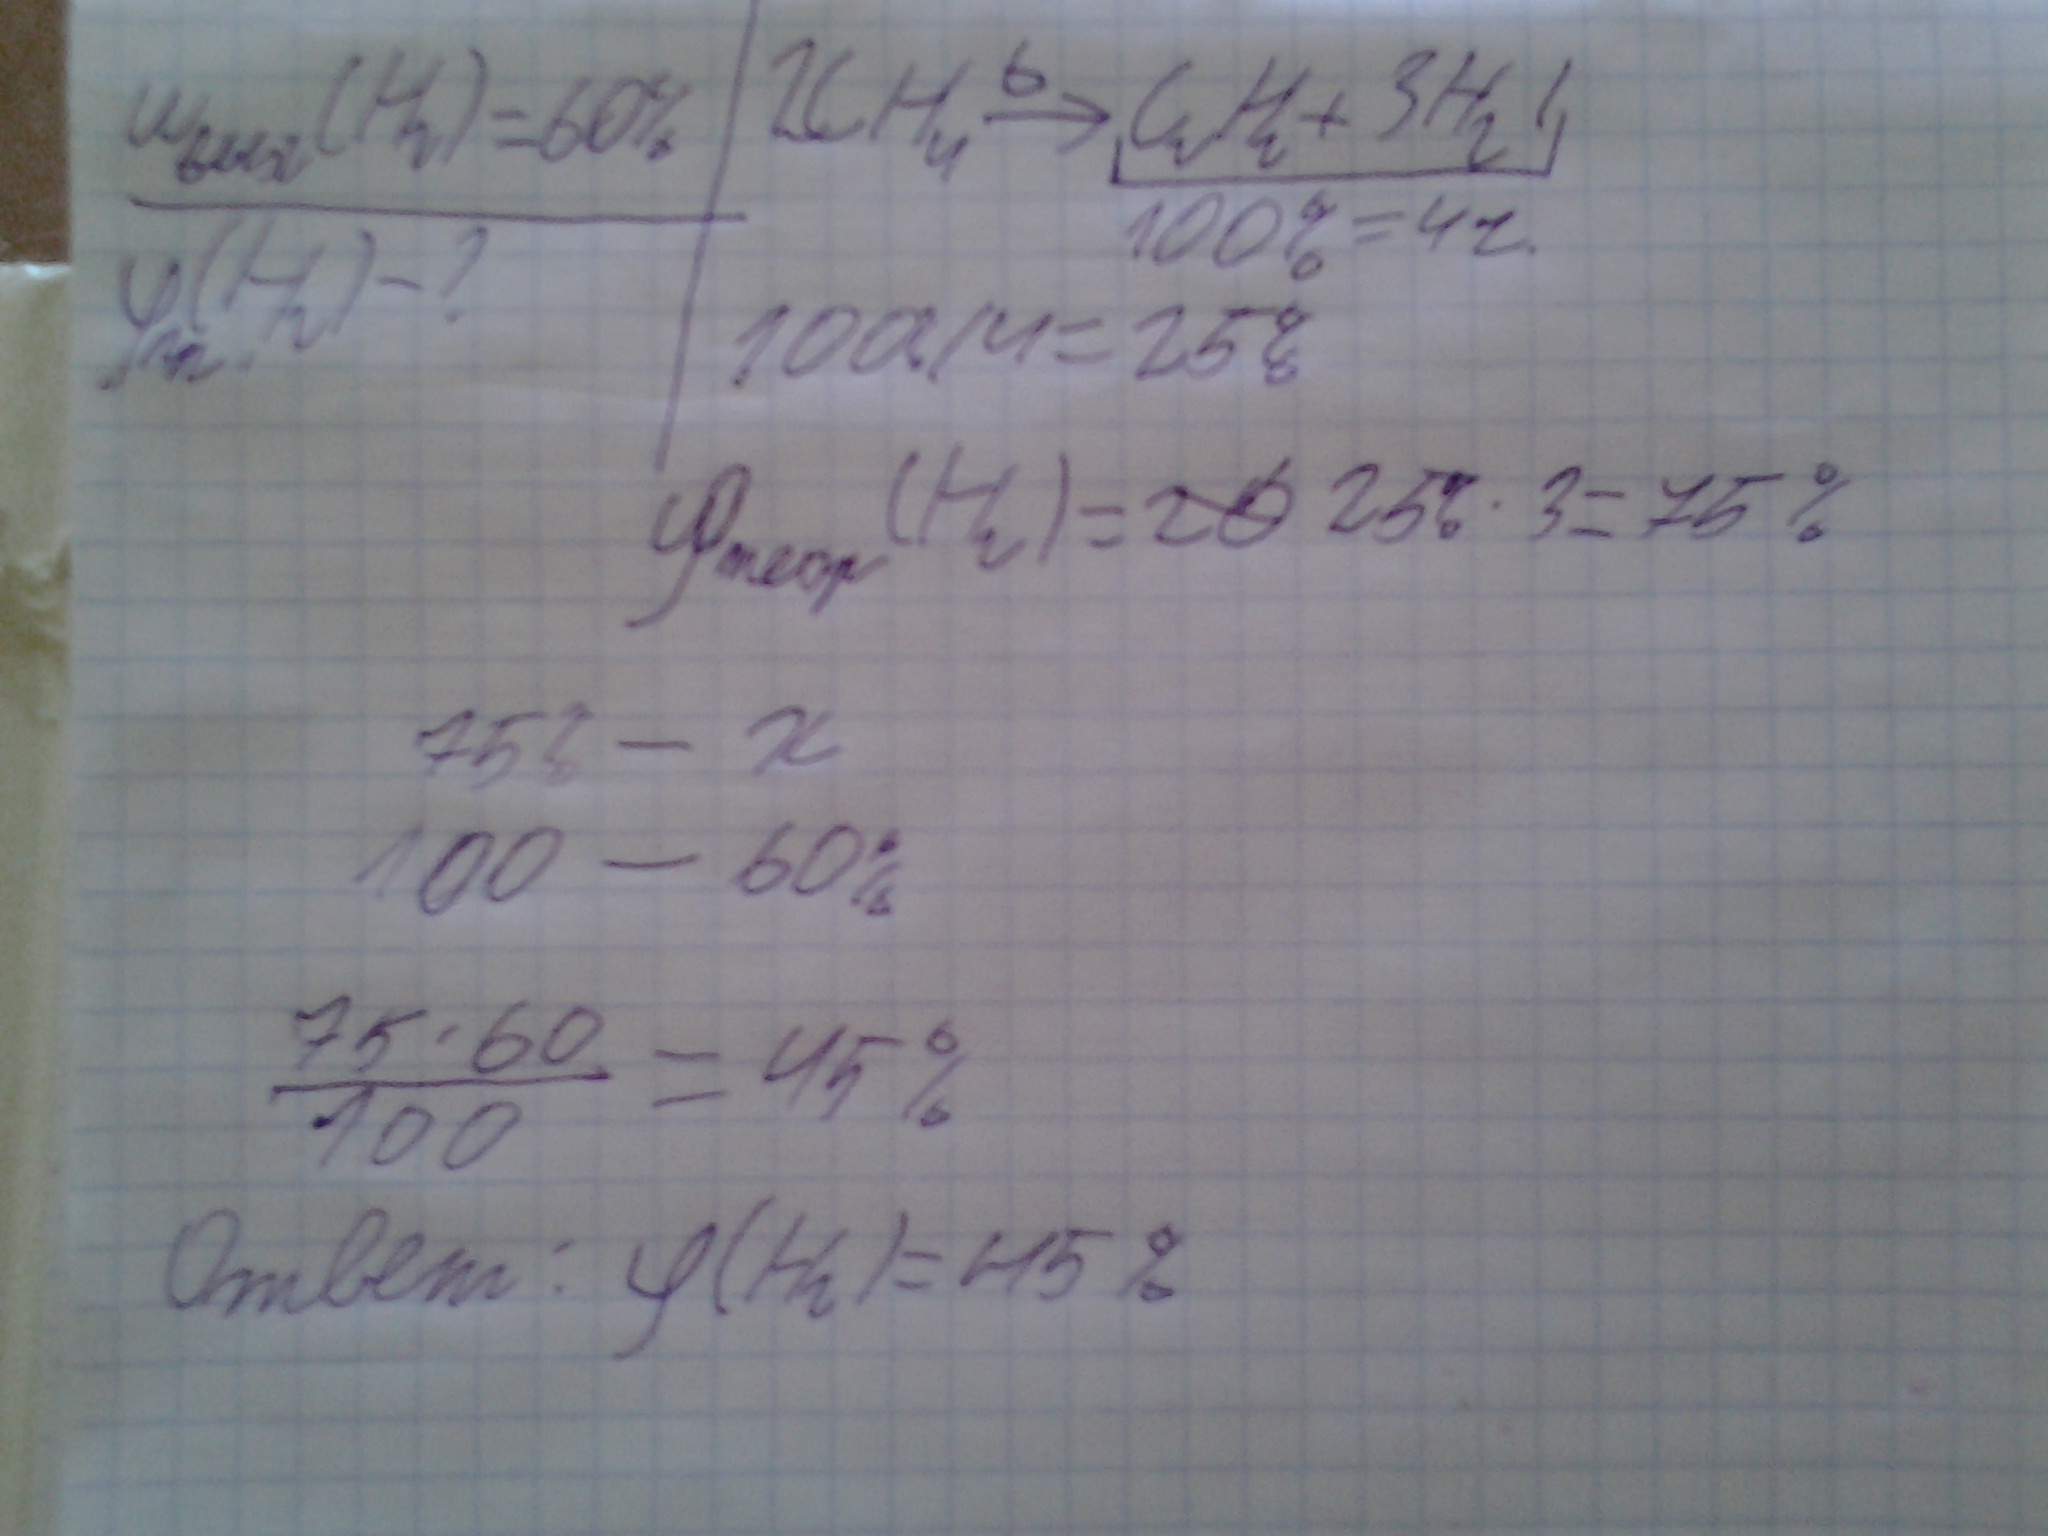 ω вых (H₂) = 60%
φ(H₂) - ?
2CH₄ → C₂H₂ + 3H₂↑
100% = 4ч.
100/4 = 25%
φ теор (H₂) = 25% · 3 = 75%
75% — x
100 — 60%
75 · 60 / 100 = 45%
Ответ: φ(H₂) = 45%